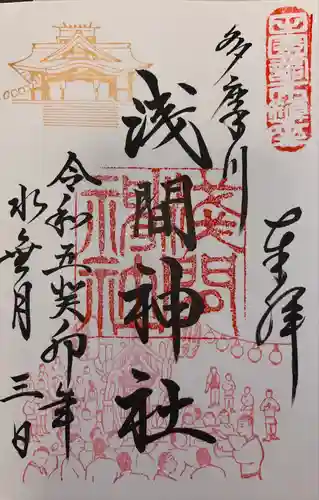 奉拝
多摩川
浅間神社
令和五癸卯年
水無月 三日
浅間神社